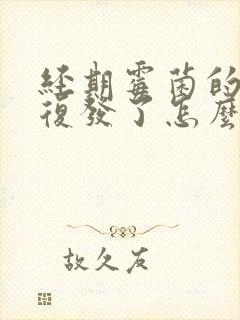 經期霉菌的
復發了怎麼
故久友